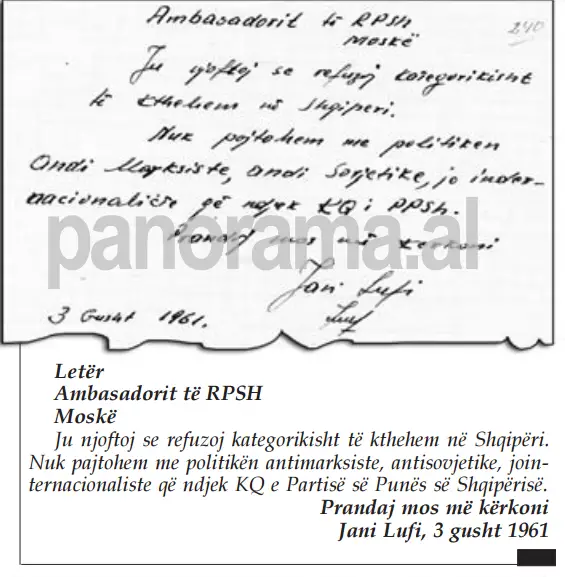 Ambasadorit të RPSH
Moskë
240
Ju njoftoj se refuzoj kategorikisht
të kthehem në Shqiperi.
Nuk pajtohem me politiken
Andi Marksiste, andi Sovjetike, jo inder-
nacionaliste që ndjek KQ i PPSh.
Prandaj mos më kerkoni
Jani Lufi
Luf
3 Gusht 1961.
panorama.al
Letër
Ambasadorit të RPSH
Moskë
Ju njoftoj se refuzoj kategorikisht të kthehem në Shqipëri.
Nuk pajtohem me politikën antimarksiste, antisovjetike, join-
ternacionaliste që ndjek KQ e Partisë së Punës së Shqipërisë.
Prandaj mos më kërkoni
Jani Lufi, 3 gusht 1961